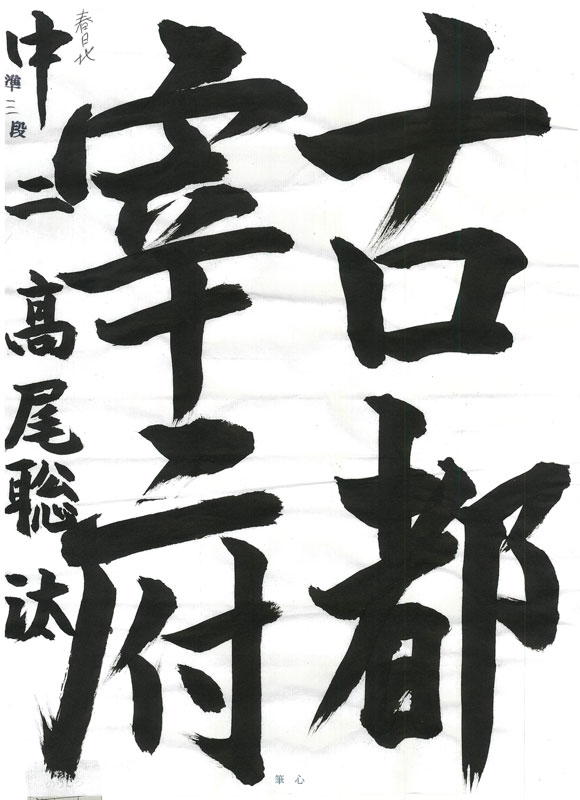 古都
宰府
中二 高尾聡汰
準二段
春日北
心筆